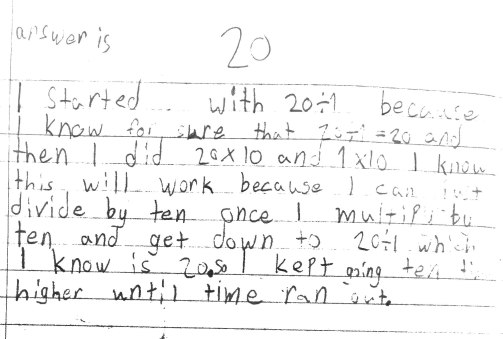 answer is 20
I started with 20÷1 because
I know for sure that 20÷1=20 and
then I did 20x10 and 1x10 I know
this will work because I can just
divide by ten once I multiply by
ten and get down to 20÷1 which
I know is 20. so I kept going ten
higher until time ran out.